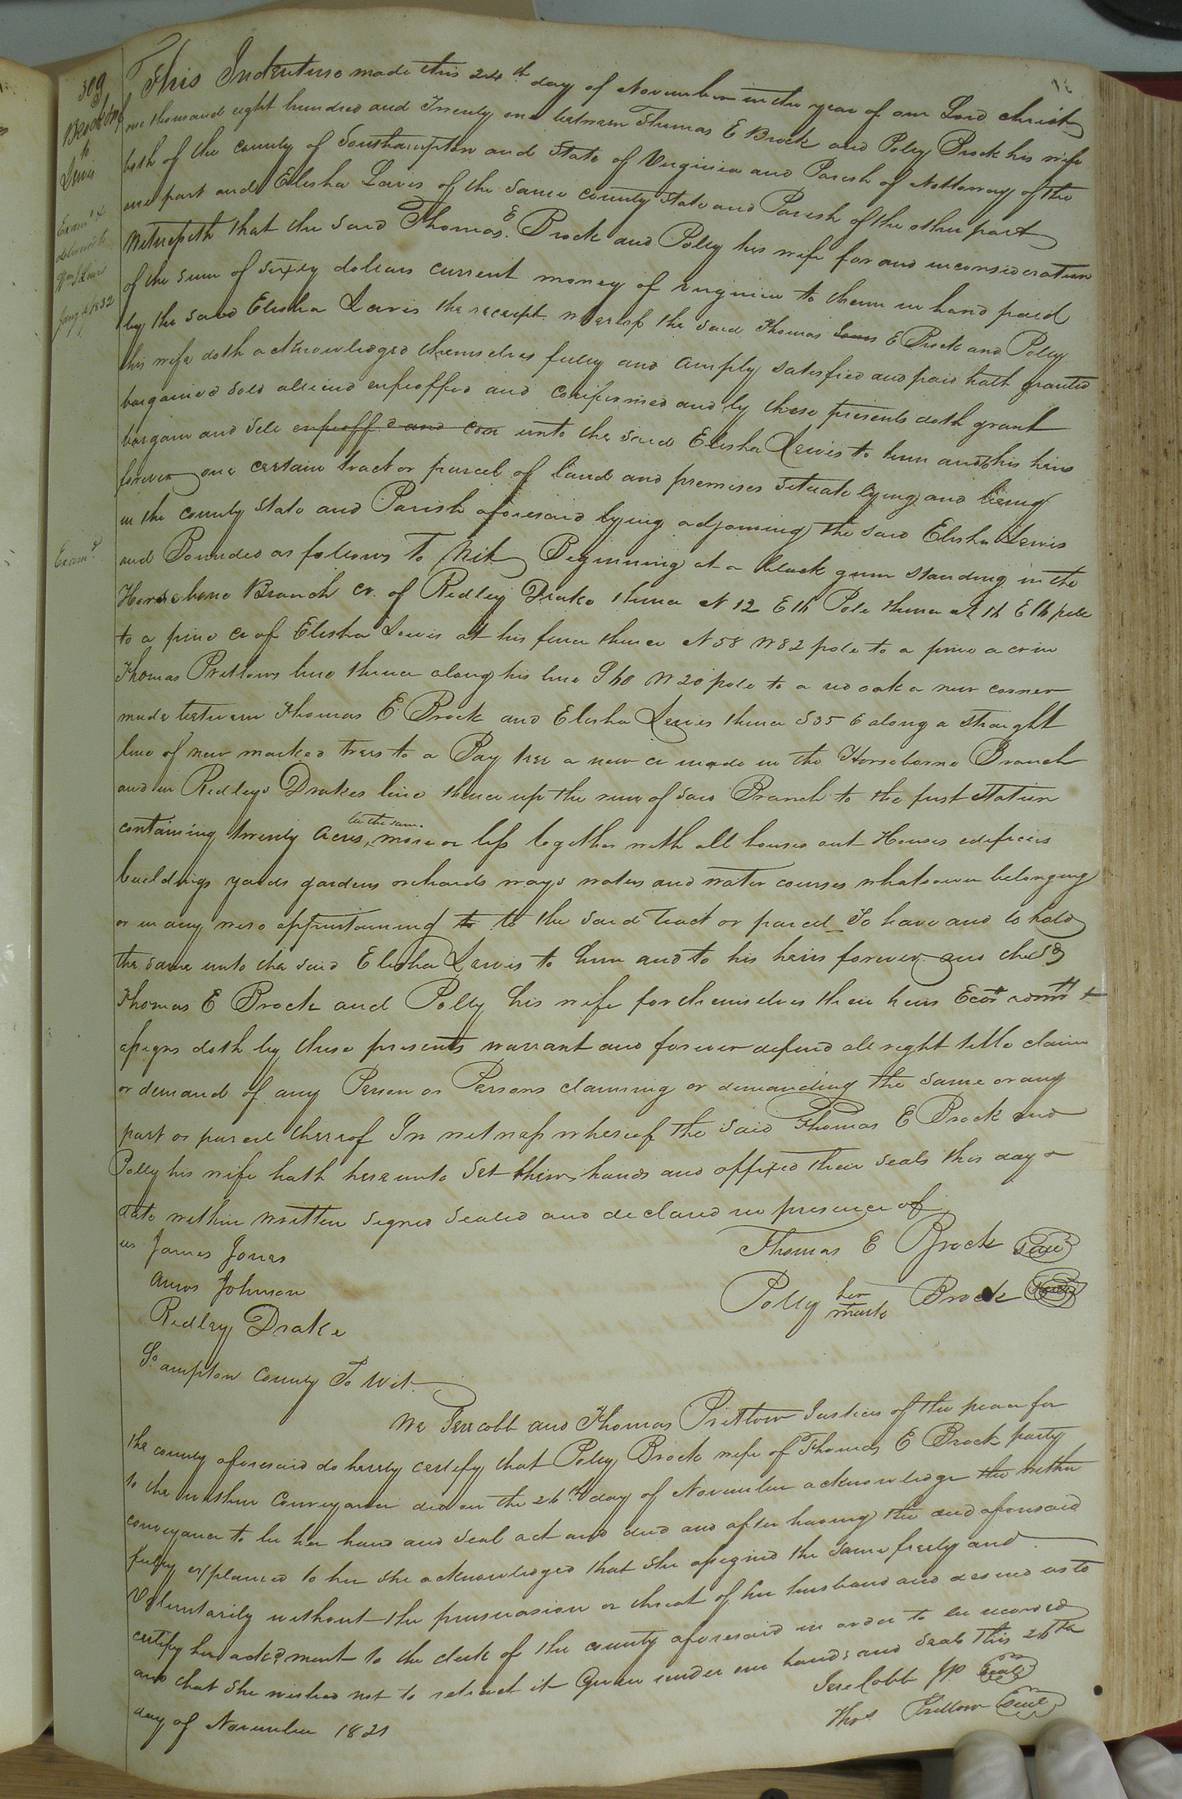 309
Brock & wf
to
Lewis
Exam.d &
delivered to
Wm Lewis
Jany 4 1832
This Indenture made this 24th day of November in the year of our Lord christ
one thousand eight hundred and Twenty one between Thomas E Brock and Polly Brock his wife
both of the county of Southampton and State of Virginia and Parish of Nottoway of the
one part and Elisha Lewis of the same county State and Parish of the other part
Witnesseth that the said Thomas E Brock and Polly his wife for and in consideration
of the sum of sixty dollars current money of virginia to them in hand paid
by the said Elisha Lewis the receipt whereof the said Thomas E Brock and Polly
his wife doth acknowledged themselves fully and amply satisfied and paid hath granted
bargained sold aliend enfeoffed and confirmed and by these presents doth grant
bargain and sell enfeoff d and con unto the said Elisha Lewis to him and his heirs
forever one certain tract or parcel of land and premises situate lying and being
in the county State and Parish aforesaid lying adjoining the said Elisha Lewis
Exam.d
and Bounded as follows To Wit, Beginning at a black gum standing in the
Horsebone Branch cr. of Ridley Drake thence N 12 E 16 Pole thence N 16 E 16 pole
to a pine cr of Elisha Lewis at his fence thence N 58 W 82 pole to a pine a cr in
Thomas Pretlows line thence along his line S 60 W 20 pole to a red oak a new corner
made between Thomas E. Brock and Elisha Lewis thence S 35 E along a straight
line of new marked trees to a Bay tree a new cr made in the Horsebone Branch
and in Ridleys Drakes line thence up the run of said Branch to the first station
containing twenty acres, be the same more or less together with all houses out Houses edifices
buildings yards gardens orchards ways waters and water courses whatsoever belonging
or in any wise appurtaining to to the said Tract or parcel To have and to hold
the same unto the said Elisha Lewis to him and to his heirs forever and the sd
Thomas E Brock and Polly his wife for themselves their heirs Ecors admrs &
assigns doth by these presents warrant and forever defend all right title claim
or demand of any Person or Persons claiming or demanding the same or any
part or parcel thereof In witness whereof the said Thomas E Brock and
Polly his wife hath hereunto Set their hands and affixed their seals this day &
date within written signed sealed and declared in presence of
us James Jones Thomas E Brock Seal
Amos Johnson Polly her mark Brock Seal
Ridley Drake
So. ampton County To Wit.
We Jere cobb and Thomas Pretlow Justices of the peace for
the county aforesaid do hereby certify that Polly Brock wife of Thomas E Brock party
to the within Conveyance did on the 26th day of November acknowledge the within
conveyance to be her hand and seal act and deed and after having the deed aforesaid
fully explained to her she acknowledged that she assigned the same freely and
Voluntarily without the pursuasion or threat of her husband and desired us to
certify her acknment to the clerk of the county aforesaid in order to be recorded
and that she wished not to retract it Given under our hands and seals this 26th
day of November 1821
Jere Cobb JP Seal
Thos Pretlow Seal